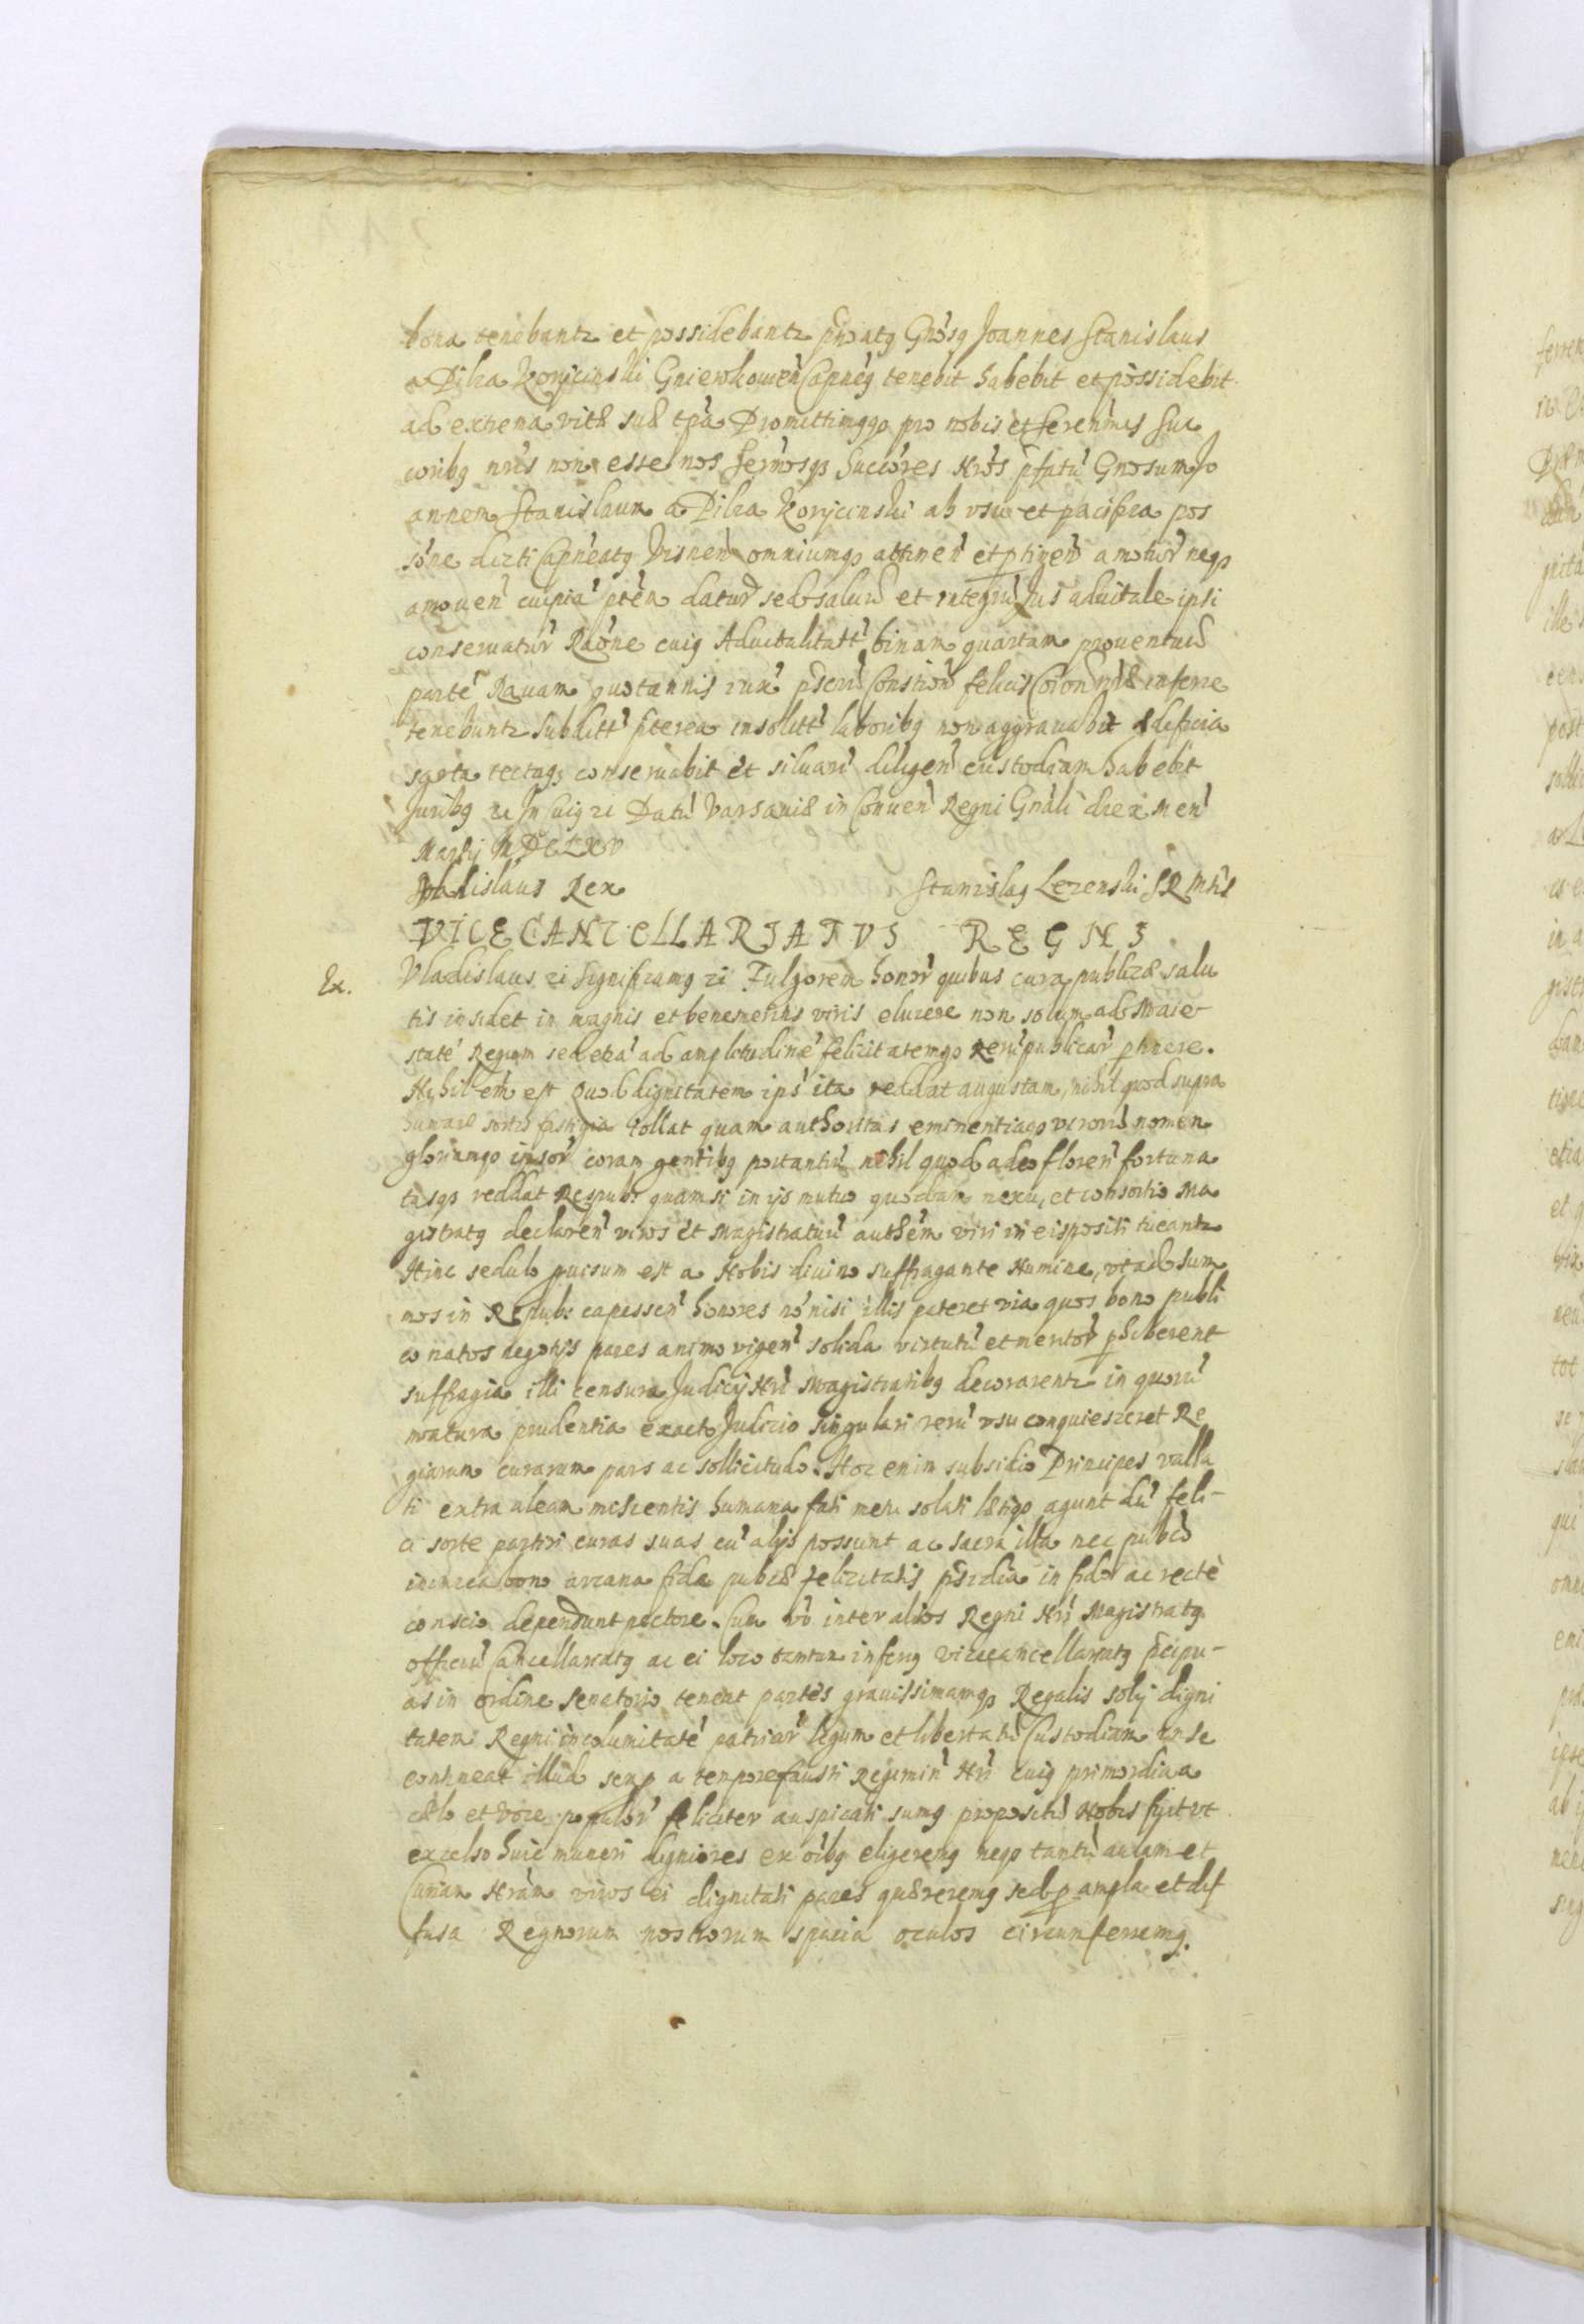 bona tenebantr et possidebantr privatq Gnosq Joannes Stanislaus
a Pilca Koryciński Gniewkowien Capneq tenebit habebit et possidebit
ad extrema vitæ suæ tpa Promittimqqꝫ pro nobis et Serenmis Suc
coribq nris non esse nos Sermosqꝫ Succores Nros pfatu Gnosum Jo
annem Stanislaum a Pilca Koryciński ab usu et pacifica pos
sone dicti Capneatq omniumqꝫ attinen et ptinen amotur neqꝫ
amouen cuipia ptem datur sed saluu et integru Jus aduitale ipsi
conseruatur Raone cuiq Aduitalitatt binam quartam prouentuu
parte Rauam quotannis iux pscru Constion felicis Coron nræ inferre
tenebuntr Subditt pterea insolitt laboribq non aggrauabit ædificia
sarta tectaqꝫ conseruabit et siluaru diligen custodiam habebit
Juribq zc In Cuiq zc Datu Varsauiæ in Conuen Regni Gnali die x Men
Martij MDCXXXV
Vladislaus Rex Stanislaq Lezenski SRMtis
VICECANCELLARIATVS REGNI
Ex. Vladislaus zc Significamq zc Fulgorem honor quibus cura publicæ salu
tis insidet in magnis et benemeritis viris elucere non solum ad Maie
state Regiam sed etia ad amplitudine felicitatemqꝫ Reru publicar ptinere.
Nihil em est quod dignitatem ips ita reddat augustam, nihil quod supra
humanæ sortis fastigia tollat quam authoritas eminentiaqꝫ viroru nomen
gloriamqꝫ ipsor coram gentibq portantiu nihil quod adeo floren fortuna
tasqꝫ reddat Respubs quam si in ijs mutuo quodam nexu, et consortio Ma
gistratq declaren viros et Magistratuu authem viri in eis positi tueantr
Hinc sedulo puisum est a Nobis diuino suffragante Numine, ut ad sum
mos in Repubs capessen honores no nisi illis pateret via quos bono publi
co natos negotijs pares animo vigen solida virtutu et meritor phiberent
suffragia illi censura Judicij Nri Magistratibq decorarentr in quoru
matura prudentia exacto Judicio singulari reru usu conquiesceret Re
giarum curarum pars ac sollicitudo. Hoc enim subsidio Principes valla
ti extra aleam miscentis humana fati metu soluti lætiqꝫ agunt du feli-
ci sorte partiri curas suas cu alijs possunt ac sacra illa nec publico
inimica bono arcana fida pubcæ felicitatis psidia in fido ac recte
conscio deponunt pectore. Cum vo inter alios Regni Nri Magistratq
officiu Cancellariatq ac ei loco tantum inferiq vicecancellariatq pcipu-
as in ordine Senatorio teneat partes grauissimamqꝫ Regalis solij digni
tatem Regni incolumitate patriar legum et libertatu Custodiam in se
contineat illud semp a tempore fausti Regimin Nri cuiq primordia a
cælo et voce populor feliciter auspicati sumq propositu Nobis fuit ut
excelso huic muneri digniores ex oibq eligeremq neqꝫ tantu aulam et
Curiam Nram viros ei dignitati pares quæreremq sed p ampla et dif
fusa Regnorum nostrorum spacia oculos circumferremq.